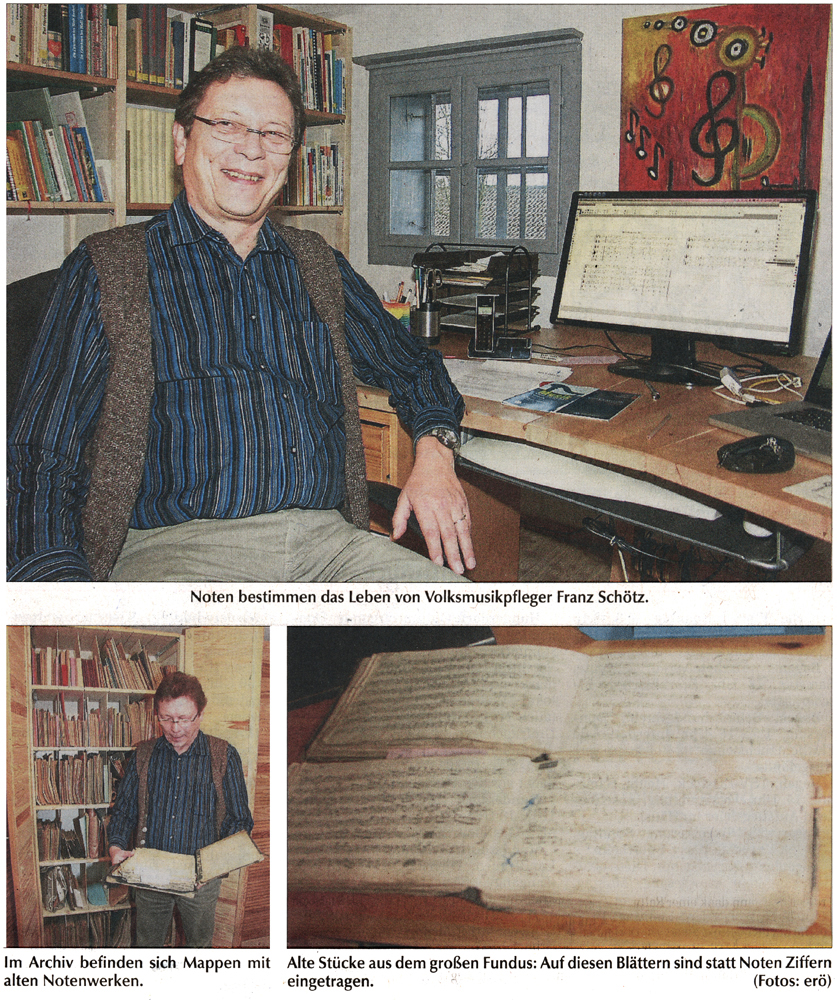 Noten bestimmen das Leben von Volksmusikpfleger Franz Schötz.
Im Archiv befinden sich Mappen mit
alten Notenwerken.
Alte Stücke aus dem großen Fundus: Auf diesen Blättern sind statt Noten Ziffern
eingetragen. (Fotos: erö)